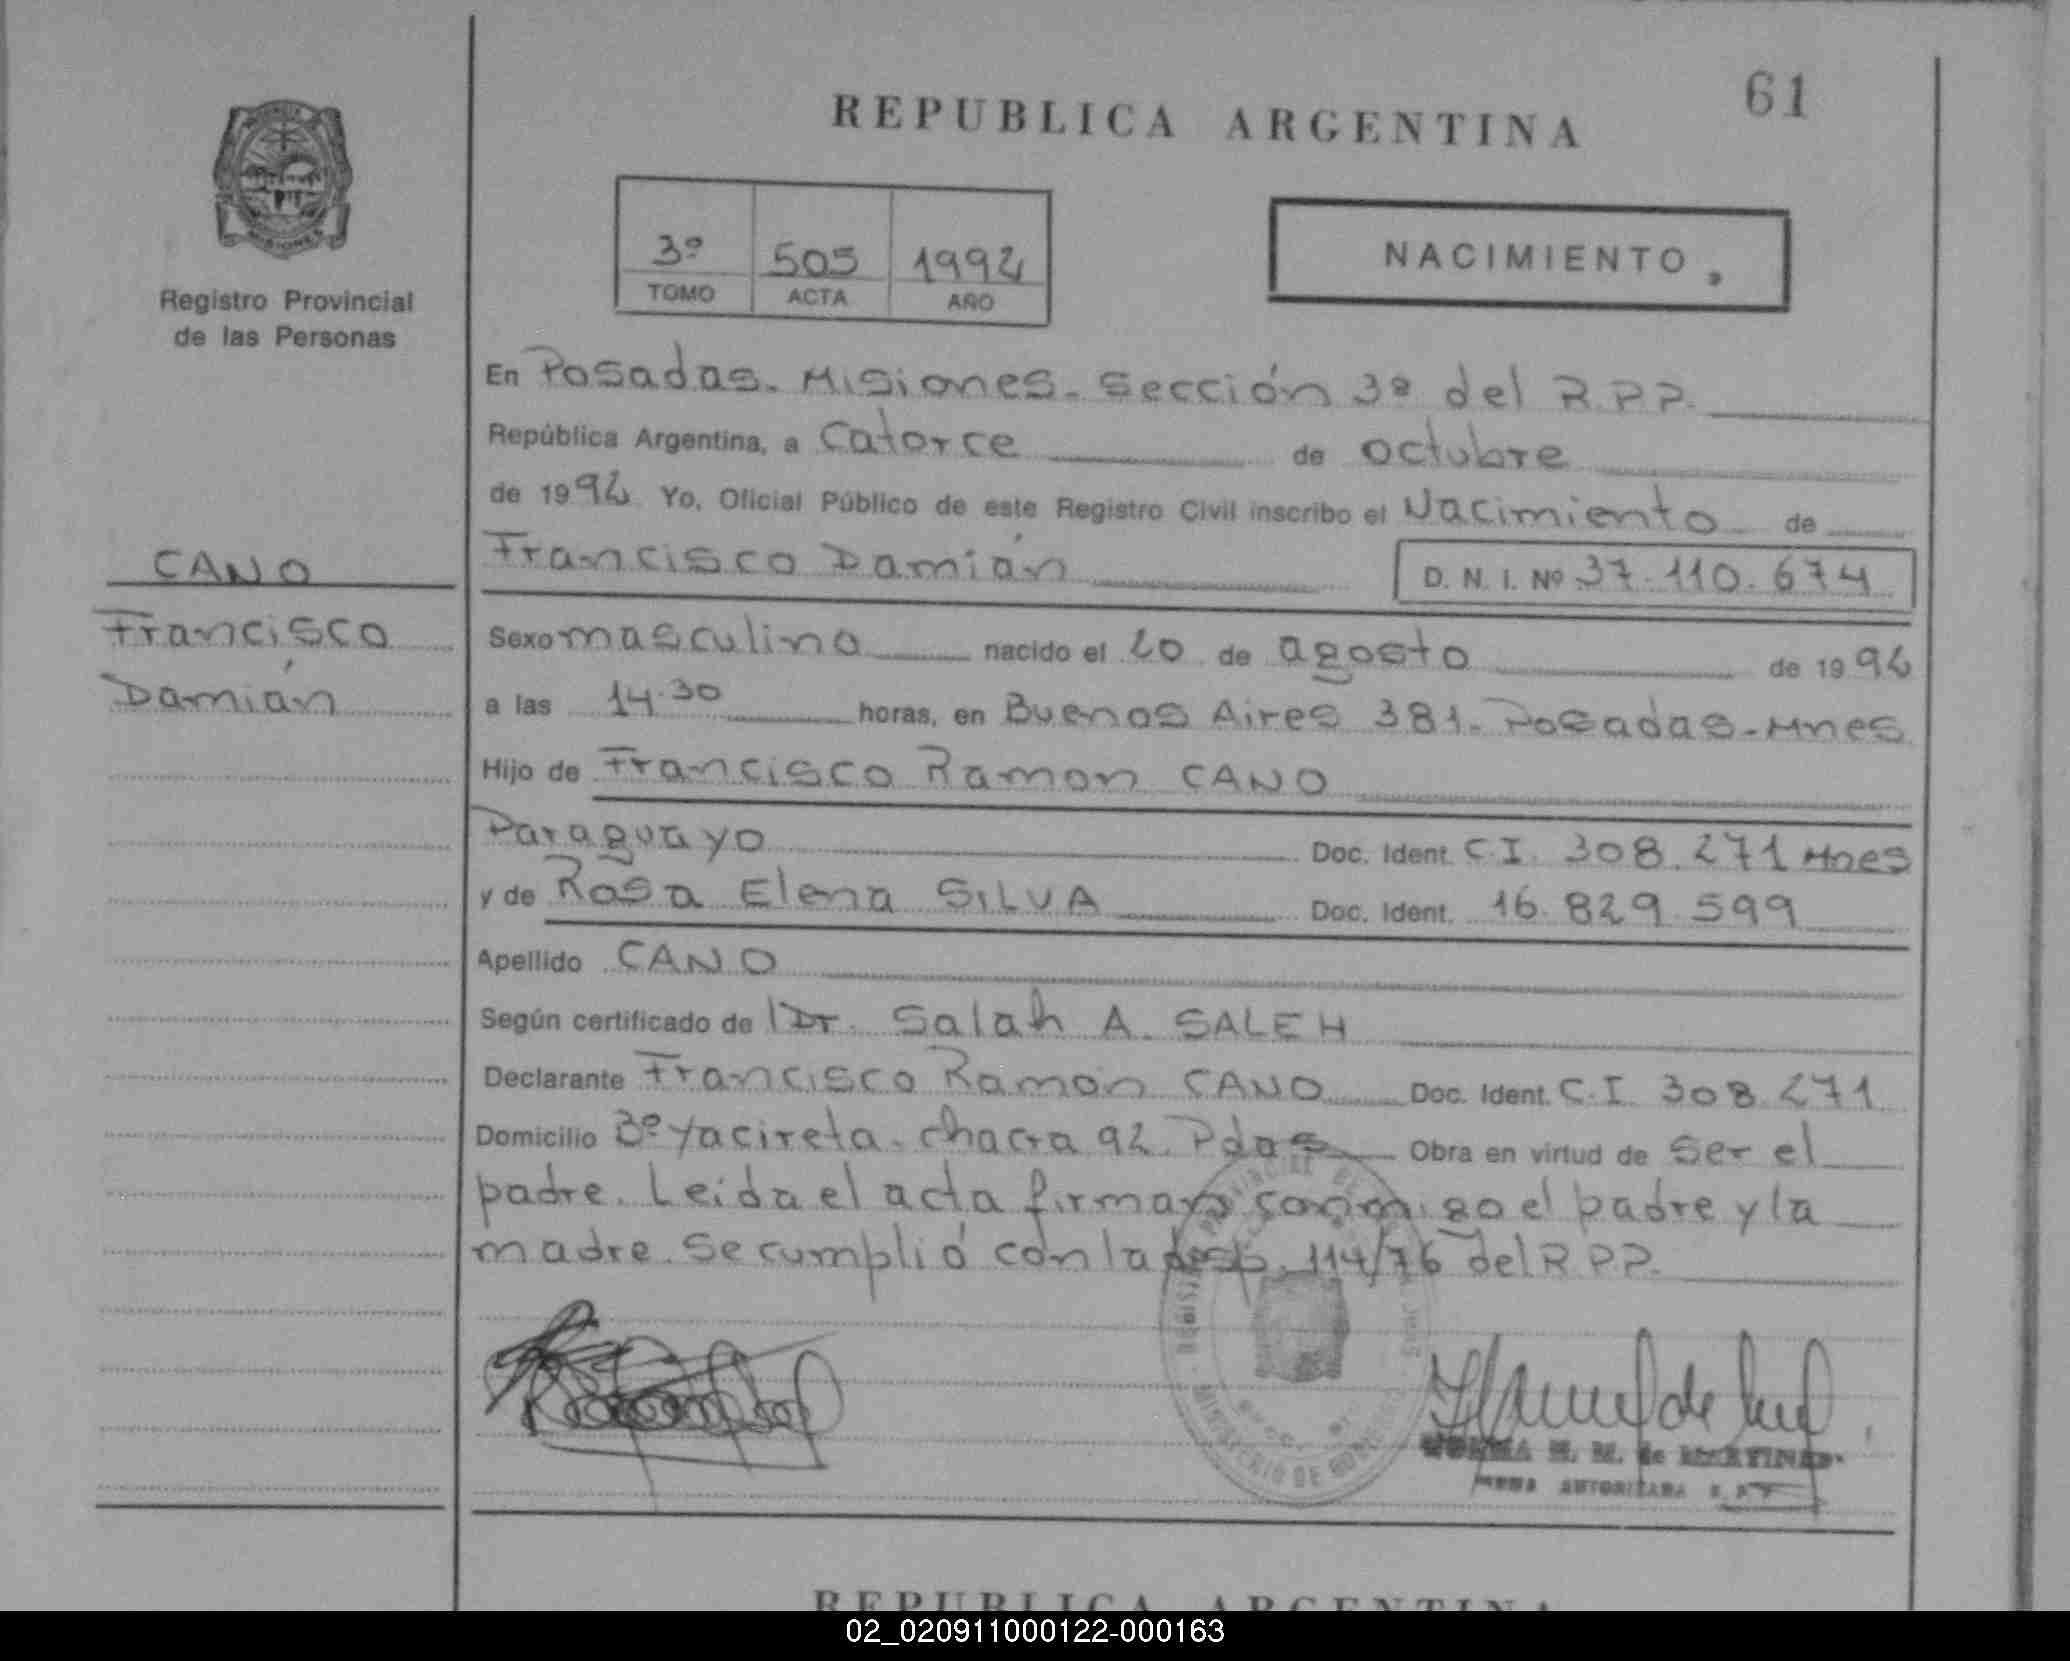 61
REPUBLICA ARGENTINA
3º 505 1992
TOMO ACTA AÑO
NACIMIENTO
Registro Provincial
de las Personas
En Posadas. Misiones. Sección 3ª del R.P.P.
República Argentina, a Catorce de octubre
de 1992 Yo, Oficial Público de este Registro Civil inscribo el Nacimiento de
Francisco Damián D. N. I. Nº 37.110.674
CANO
Francisco
Damián
Sexo masculino nacido el 20 de agosto de 1992
a las 14.30 horas, en Buenos Aires 381. Posadas-Mnes
Hijo de Francisco Ramon CANO
Paraguayo Doc. Ident. C.I. 308.271 Mnes
y de Rosa Elena SILVA Doc. Ident. 16.829.599
Apellido CANO
Según certificado de Dr. Salah A. SALEH
Declarante Francisco Ramon CANO Doc. Ident. C.I. 308.271
Domicilio Bº Yacireta. chacra 92. Pdas Obra en virtud de ser el
padre. Leida el acta firman conmigo el padre y la
madre. Se cumplió con la disp. 114/76 del R.P.P.
MINISTERIO DE GOBIERNO
NORMA H. M. de MARTINEZ
FIRMA AUTORIZADA
REPUBLICA ARGENTINA
02_020911000122-000163